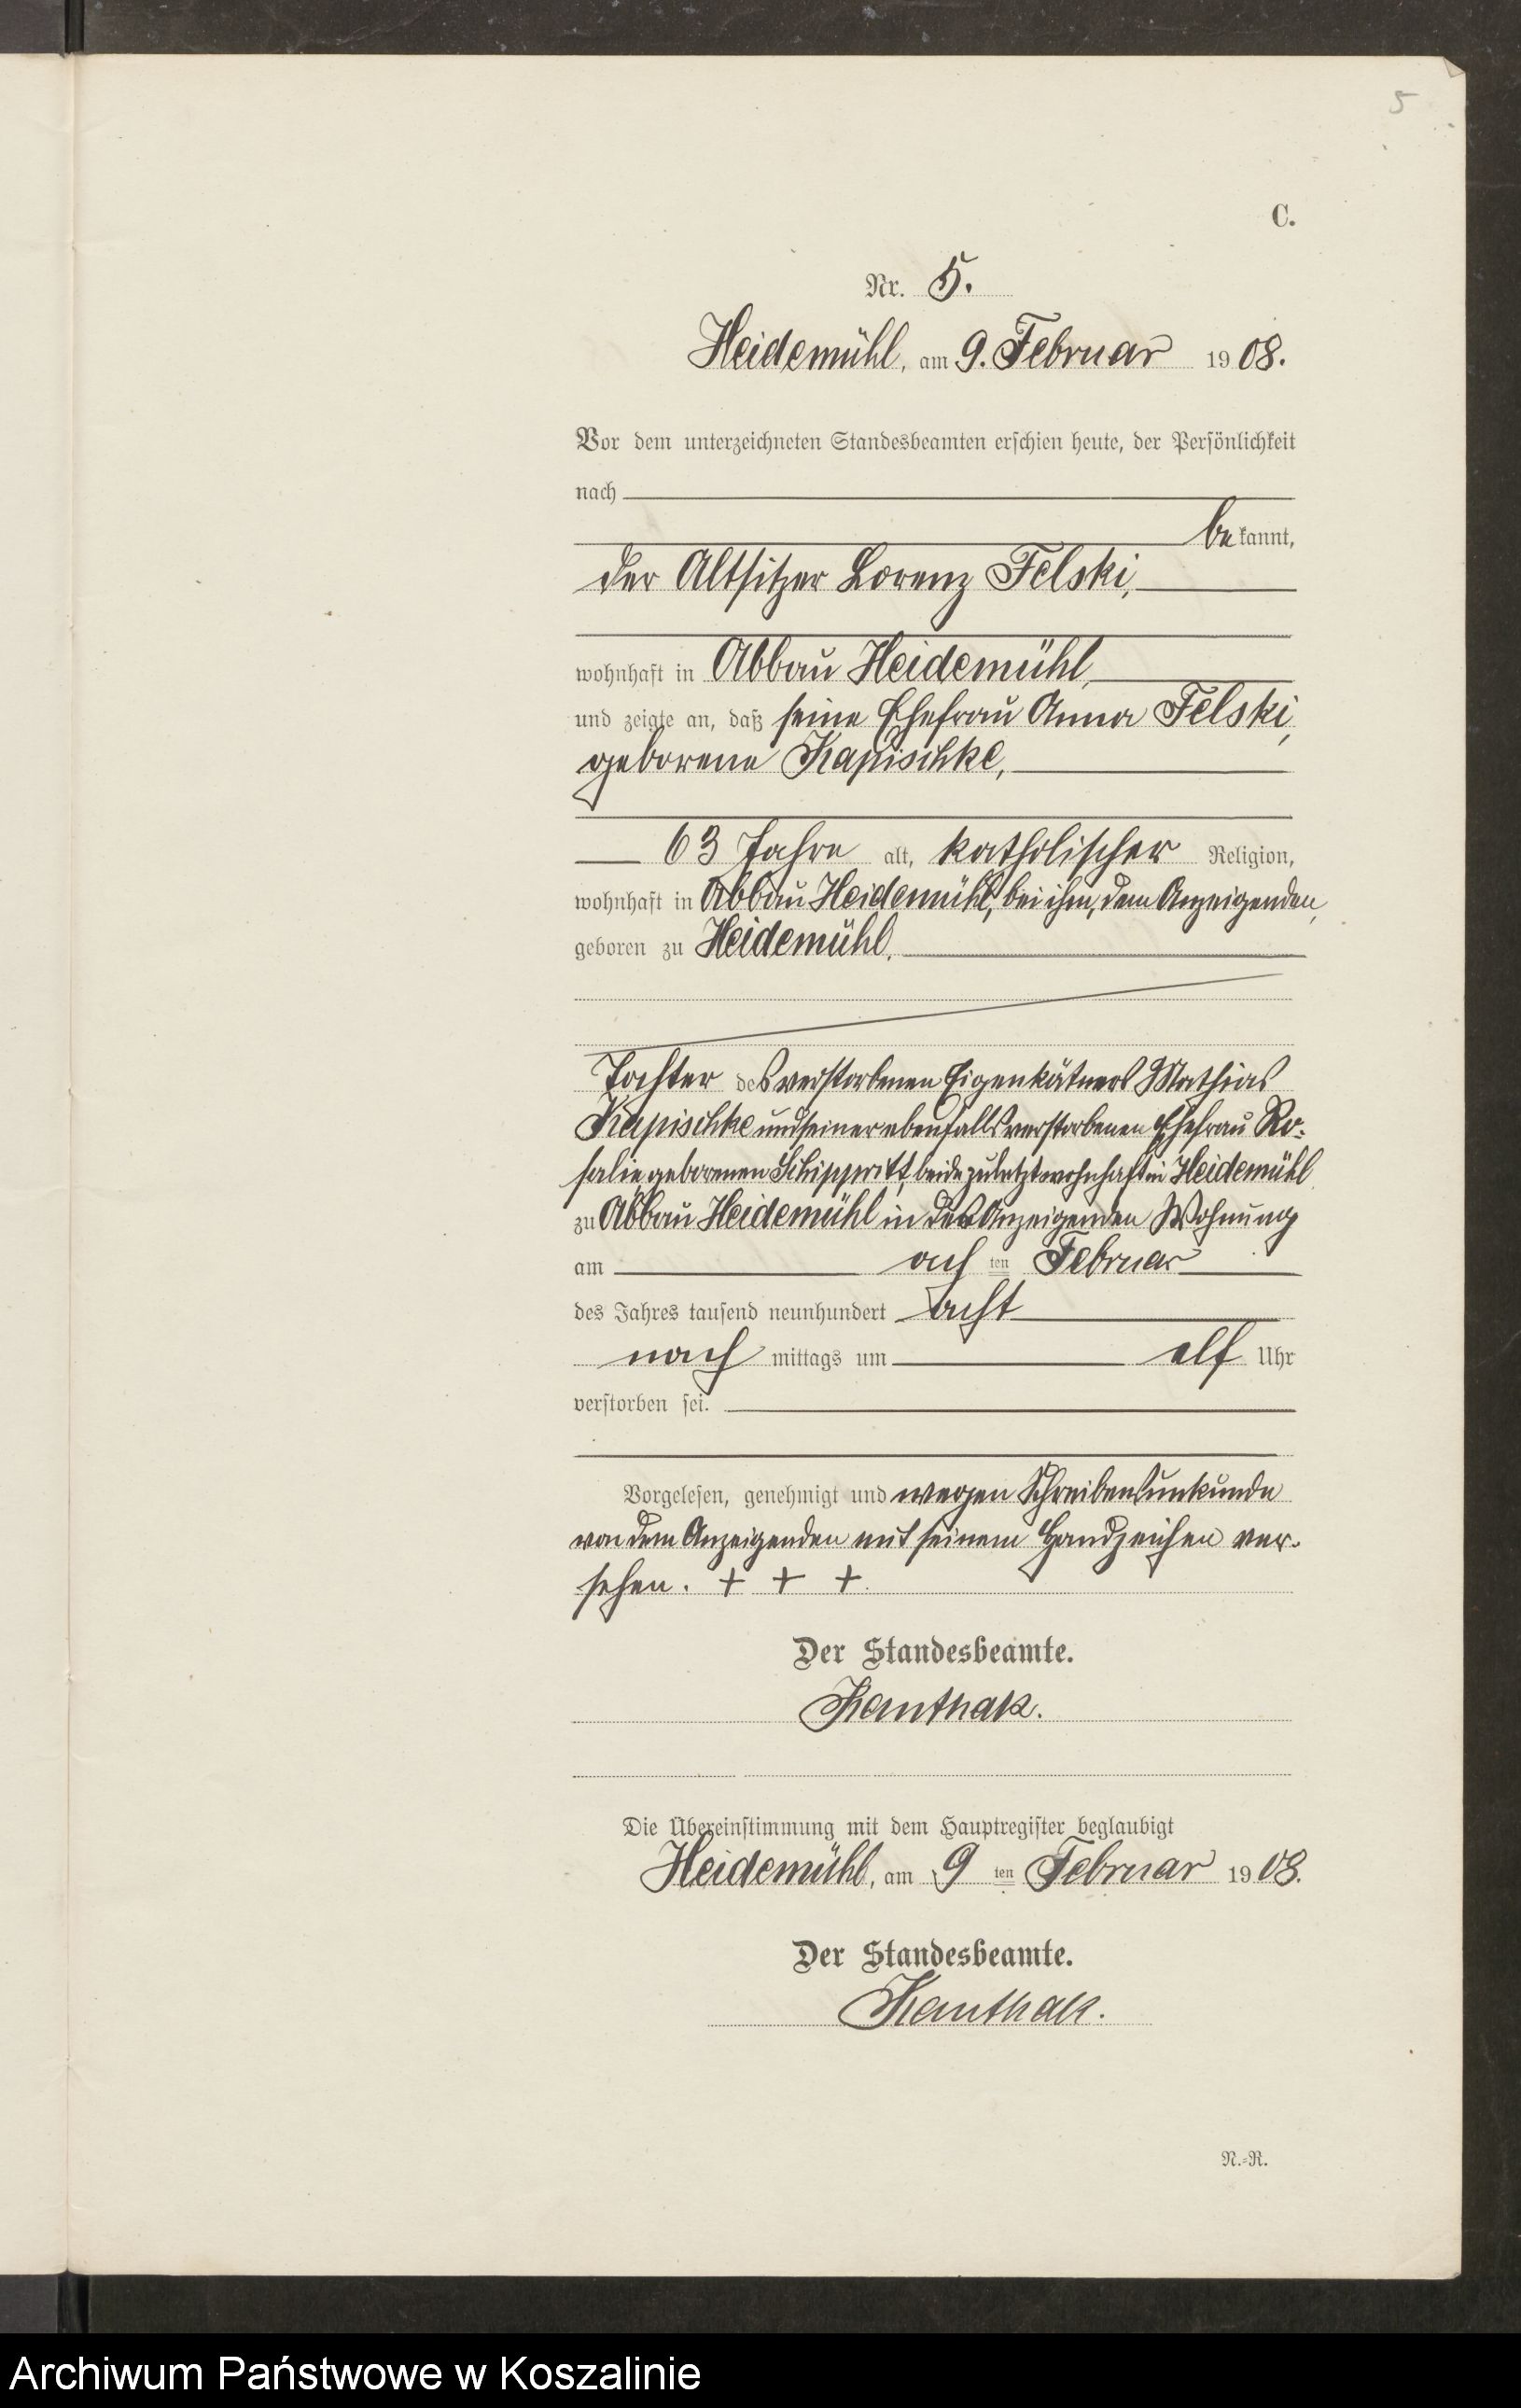 5
C.
Nr. 5.
Heidemühl, am 9. Februar 1908.
Vor dem unterzeichneten Standesbeamten erschien heute, der Persönlichkeit
nach
bekannt,
der Altsitzer Lorenz Felski,
wohnhaft in Abbau Heidemühl,
und zeigte an, daß seine Ehefrau Anna Felski,
geborene Kapischke,
63 Jahre alt, katholischer Religion,
wohnhaft in Abbau Heidemühl, bei ihm, dem Anzeigenden,
geboren zu Heidemühl,
Tochter des verstorbenen Eigenkätners Mathias
Kapischke und seiner ebenfalls verstorbenen Ehefrau Ro-
salie geborenen Schippritt, beide zuletzt wohnhaft in Heidemühl
zu Abbau Heidemühl in des Anzeigenden Wohnung
am achten Februar
des Jahres tausend neunhundert acht
nachmittags um elf Uhr
verstorben sei.
Vorgelesen, genehmigt und wegen Schreibensunkunde
von dem Anzeigenden mit seinem Handzeichen ver-
sehen. + + +
Der Standesbeamte.
Kanthak.
Die Übereinstimmung mit dem Hauptregister beglaubigt
Heidemühl, am 9ten Februar 1908.
Der Standesbeamte.
Kanthak.
N.-R.
Archiwum Państwowe w Koszalinie